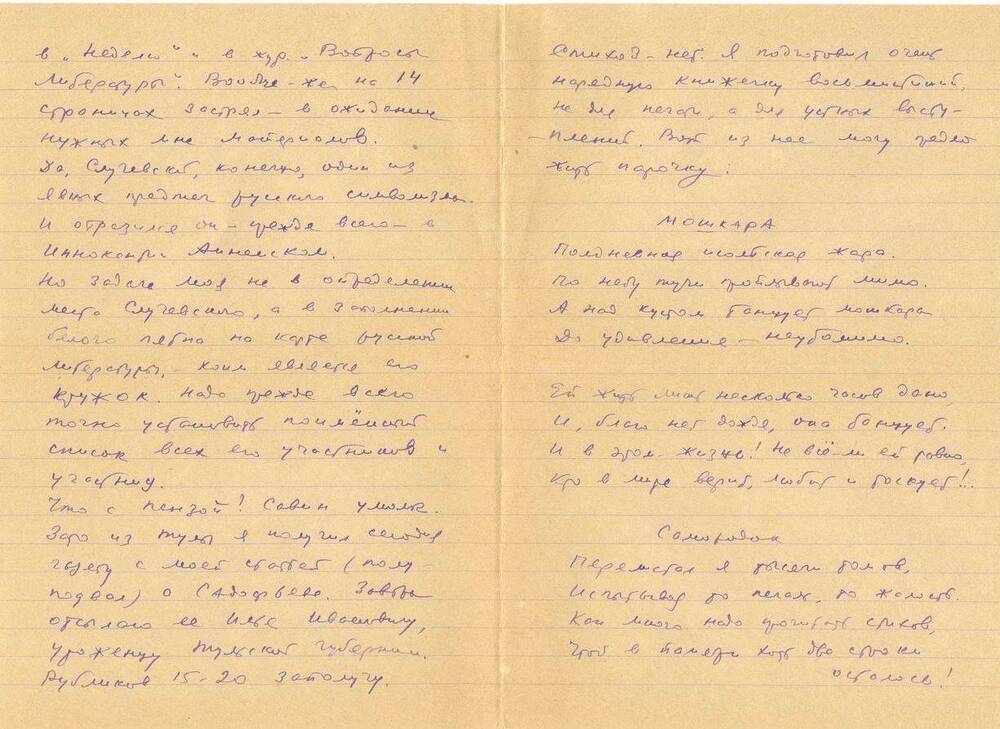 в „Неделю" и в жур. „Вопросы
литературы". Вообще-же, на 14
страницах застрял – в ожидании
нужных мне материалов.
Да, Случевский, конечно, один из
явных предтеч русского символизма.
И отразился он – прежде всего – в
Иннокентии Анненском.
Но задача моя не в определении
места Случевского, а в заполнении
белого пятна на карте русской
литературы, – коим является его
кружок. Надо прежде всего
точно установить поимённый
список всех его участников и
участниц.
Что с Пензой! Савин умолк.
Зато из Тулы я получил сегодня
газету с моей статьей (полу-
подвал) о Садофьеве. Завтра
отсылаю ее Илье Ивановичу,
уроженцу Тульской губернии.
Рубликов 15-20 заполучу.
Стихов – нет. Я подготовил очень
народную книжечку восьмистиший,
не для печати, а для устных высту-
плений. Вот из нее могу предло-
жить парочку:
Мошкара
Полдневная июльская жара.
По небу тучи проплывают мимо.
А над кустом танцует мошкара
До удивления – неутомимо.
Ей жить лишь несколько часов дано,
И, благо нет дождя, она танцует.
И в этом – жизнь! Не всё-ли ей равно,
Кто в мире верит, любит и тоскует!..
Самородок
Перелистал я тысячи томов,
Испытывая то печаль, то жалость.
Как много надо прочитать стихов,
Чтоб в памяти хоть две строки
осталось!